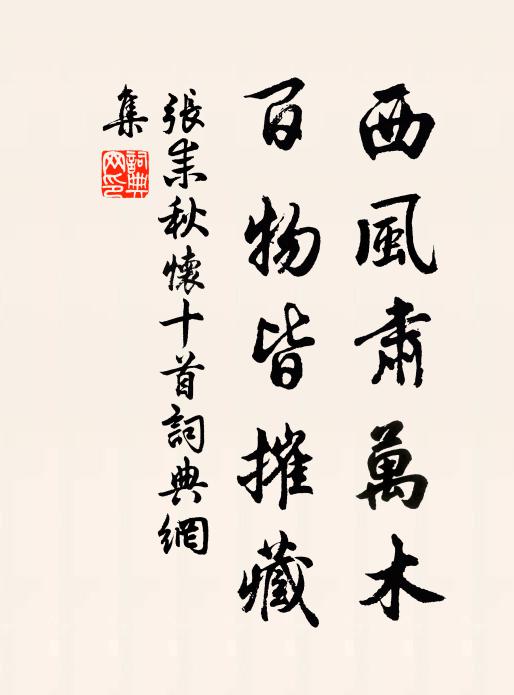 西風肅萬木
百物皆摧藏
張耒秋懷十首詞典網
集
詞典
网印